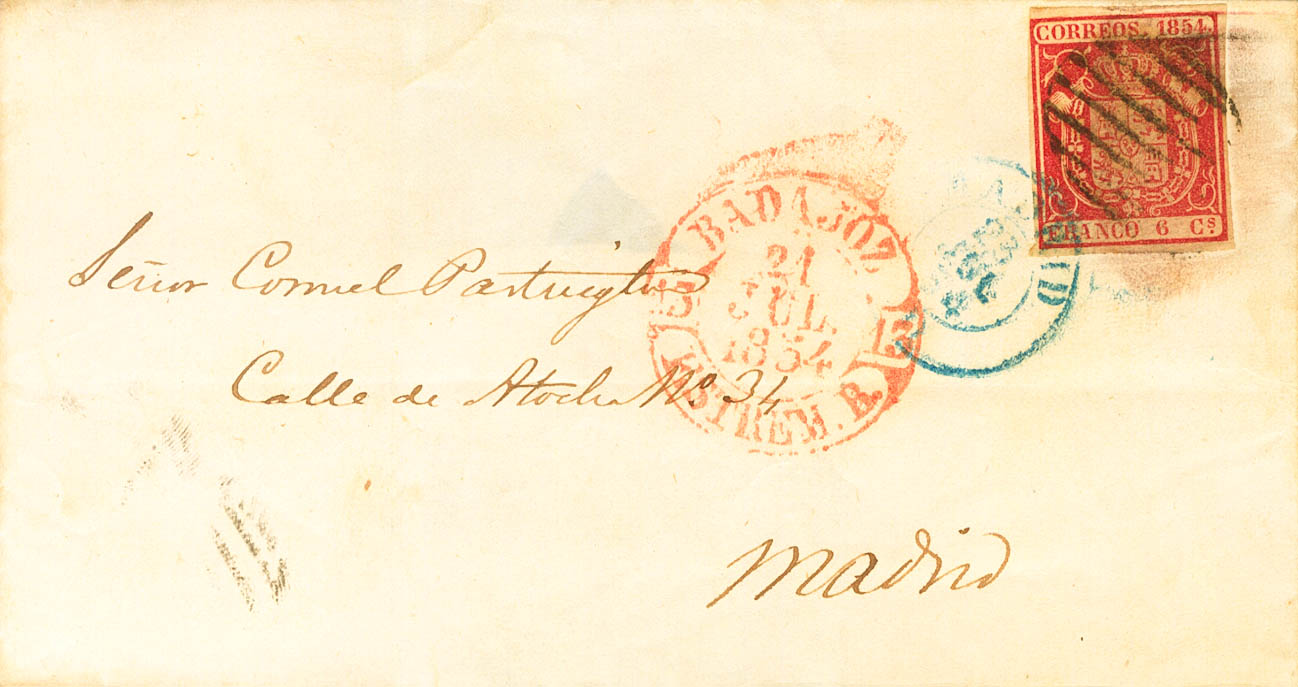 CORREOS. 1854.
FRANCO 6 Cs
BADAJOZ
21
JUL.
1854
13
ESTREM. B.
Señor Cornuel Partrington
Calle de Atocha No. 34
Madrid